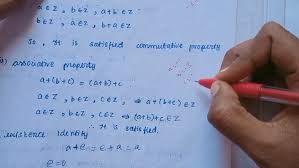 a∈Z, b∈Z, a+b∈Z
b∈Z, a∈Z, b+a∈Z
So, It is satisfied commutative property
) associative property
a+(b+c) = (a+b)+c
a∈Z, b∈Z, c∈Z ⇒ a+(b+c)∈Z
a∈Z, b∈Z, c∈Z ⇒ (a+b)+c∈Z
∴ It is satisfied.
existence identity
a+e = e+a = a
e=0